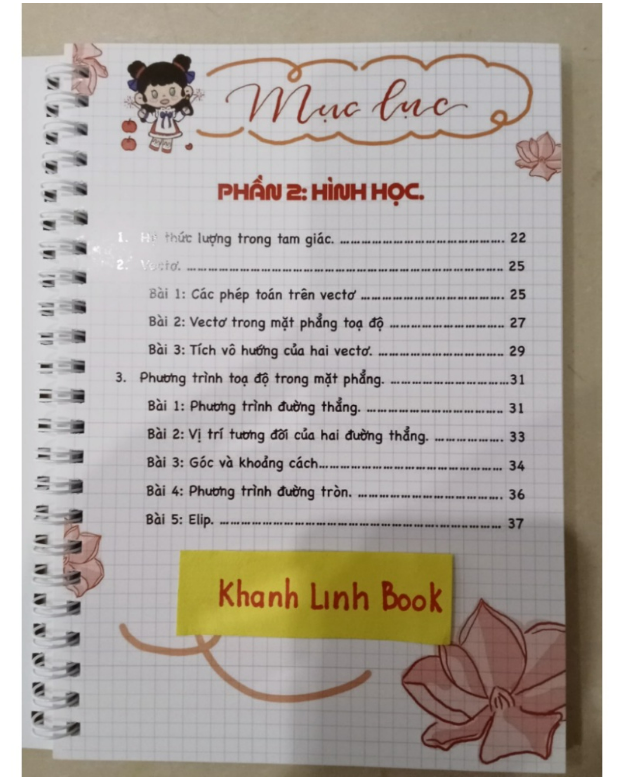 Mục lục
PHẦN 2: HÌNH HỌC.
1. Hệ thức lượng trong tam giác. .......... 22
2. Vectơ. .......... 25
Bài 1: Các phép toán trên vectơ .......... 25
Bài 2: Vectơ trong mặt phẳng toạ độ .......... 27
Bài 3: Tích vô hướng của hai vectơ. .......... 29
3. Phương trình toạ độ trong mặt phẳng. .......... 31
Bài 1: Phương trình đường thẳng. .......... 31
Bài 2: Vị trí tương đối của hai đường thẳng. .......... 33
Bài 3: Góc và khoảng cách.......... 34
Bài 4: Phương trình đường tròn. .......... 36
Bài 5: Elip. .......... 37
Khanh Linh Book